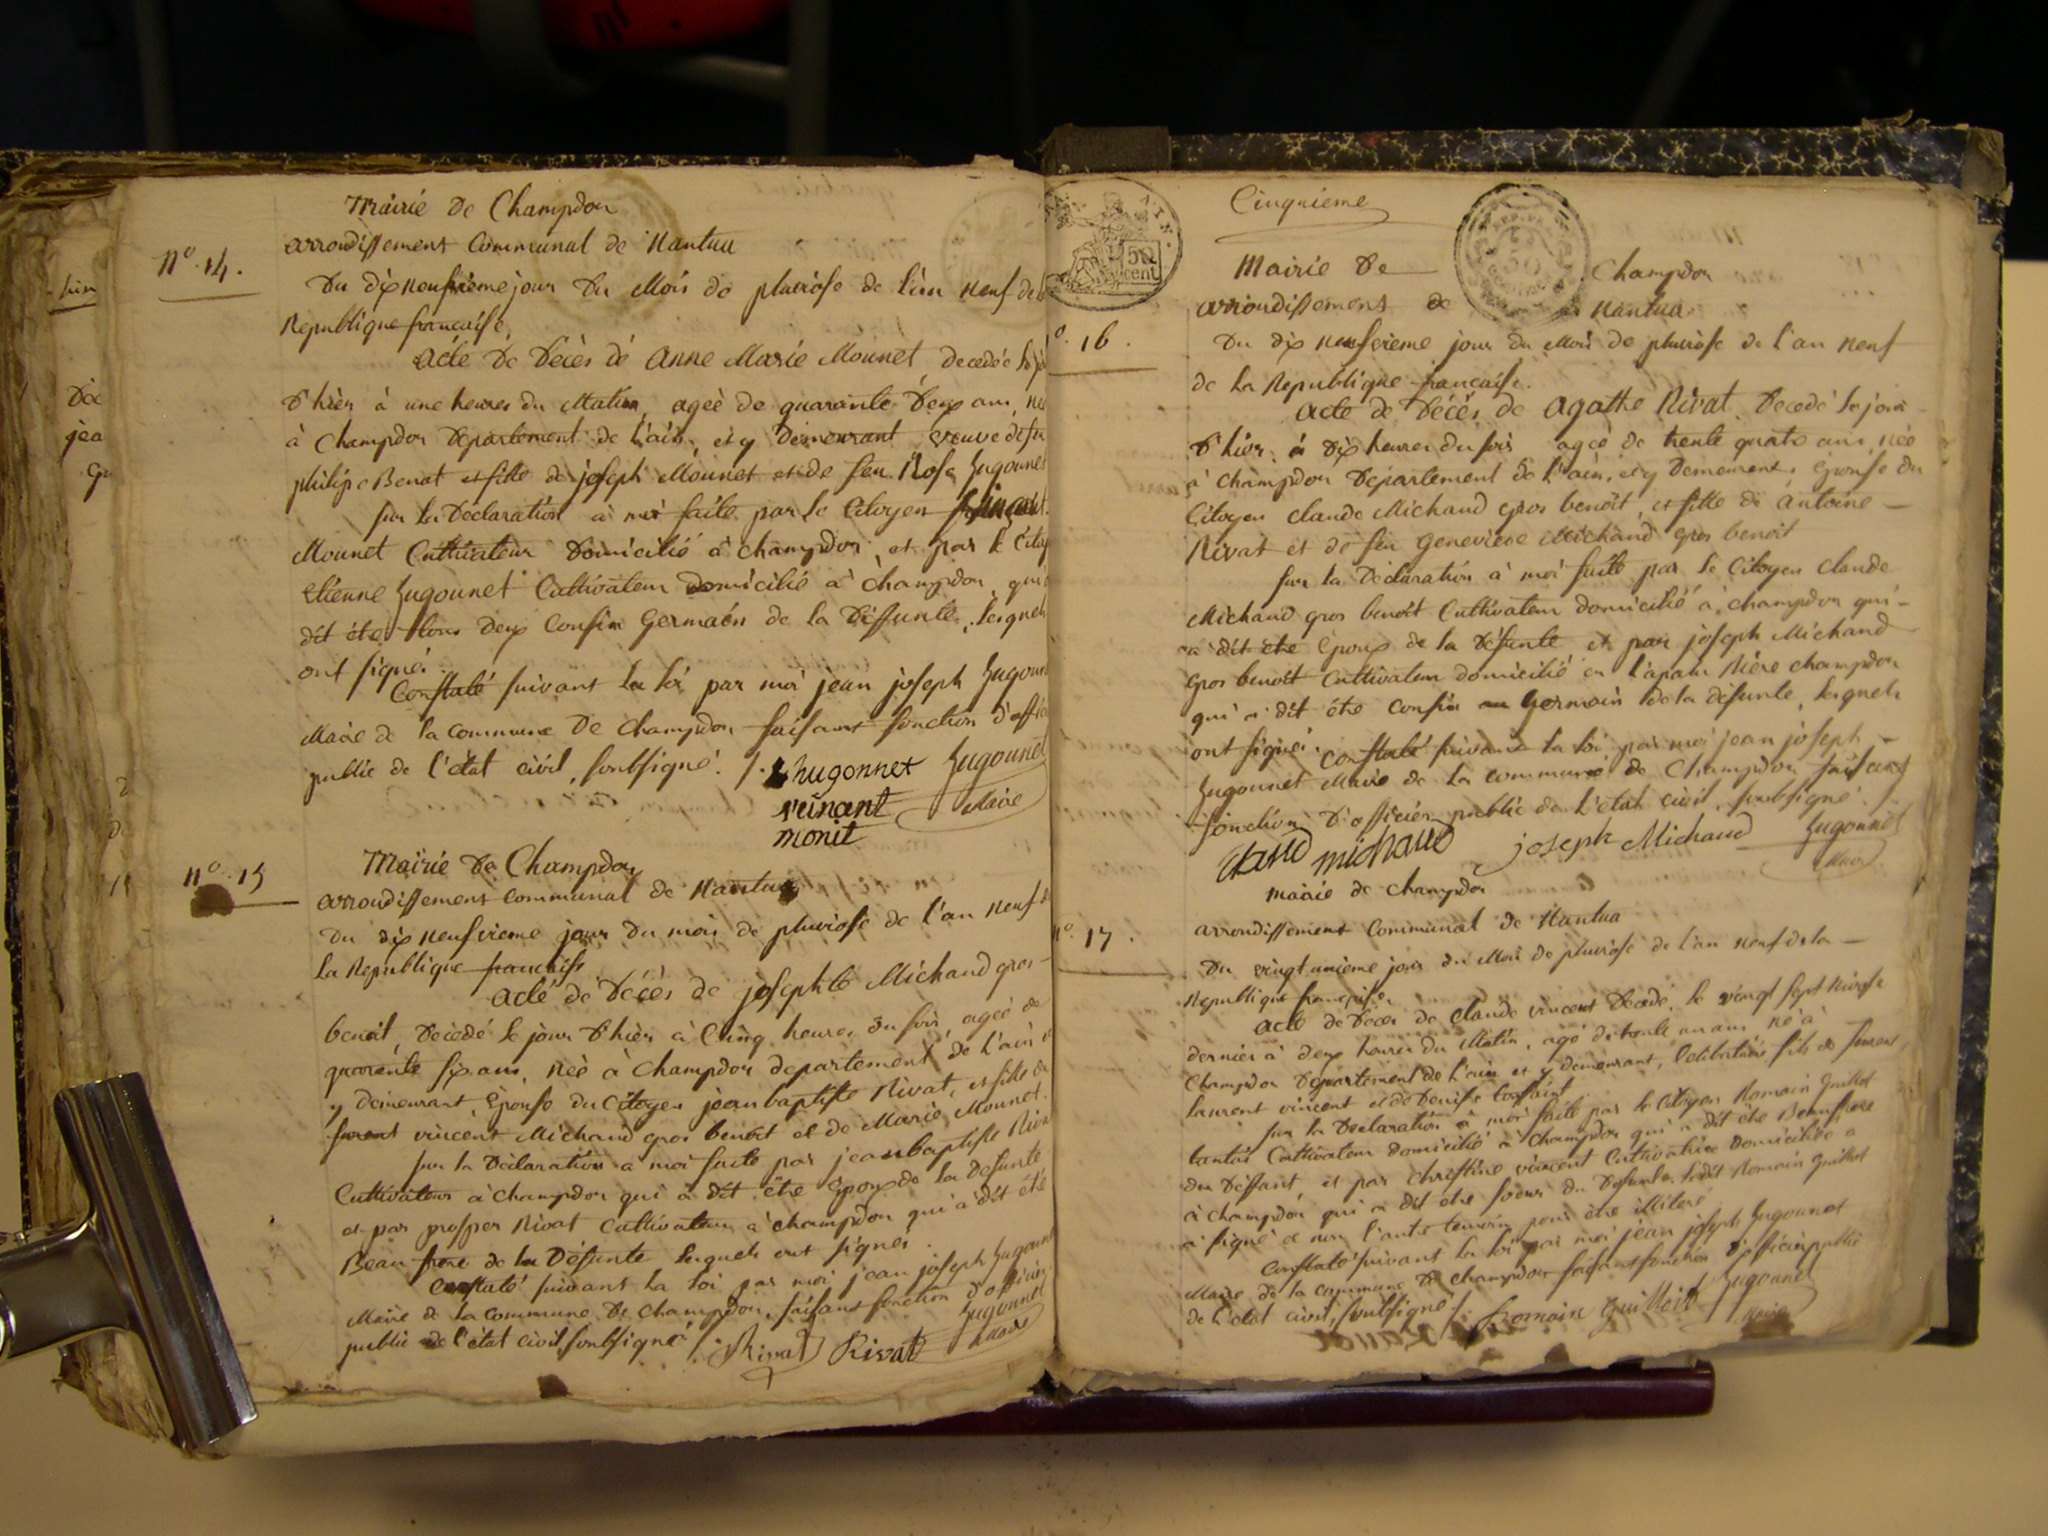 Mairie de Champdor
arrondissement Communal de Nantua
n.º 14.
Du dix neufvieme jour du Mois de pluviose de l'an neuf de
Republique francaise.
acte de Décès de anne Marie Mounet, decedée le
d'hier à une heures du Matin, ageè de quarante deux ans,
à Champdor Departement de l'ain, et y demeurant, veuve de feu
philipe Benat et fille de joseph Mounet et de feu Rose hugounet
sur la Déclaration à moi faite par le Citoyen
Mounet Cultivateur domicilié à champdor, et par le
etienne hugounet Cultivateur domicilié à champdor, qui
dit étre tous deux Cousin Germain de la Déffunte, lesquels
ont signé.
Constaté suivant la loi par moi jean joseph hugounet
Maire de la commune de Champdor faisant fonction d'offi
public de l'état civil, soussigné. /.
hugonnet hugounet
veinant Maire
monit
Mairie de Champdor
n.º 15
arrondissement communal de Nantua
Du dix neufvieme jour du mois de pluviose de l'an neuf de
la Republique francaise
acte de Décès de josephte Michaud gros
benoit, Décedé le jour d'hièr à Cinq heures du soir, ageé de
quarente six ans, Néé à Champdor departement de l'ain
y demeurant, Epouse du Citoyen jean baptiste Rivat, et fille de
furent vincent Michaud gros benoit et de Marie Mounet.
sur la Déclaration a moi faite par jean baptiste Riva
Cultivateur à champdor qui à dit être Epoux de la Défunte
et par prosper Rivat Cultivateur à champdor qui à dit été
Beau frere de la Défunte lesquels ont signés.
Constaté suivant la loi par moi jean joseph hugount
Maire de la commune de Champdor, faisant fonction d'officier
public de l'état civil soussigné /. Rivat Rivat hugounet
Maire
Cinquieme
50 cent
Mairie de Champdor
arriondissement de Nantua
º. 16.
Du dix neufvieme jour du Mois de pluviose de l'an neuf
de la Republique francaise.
acte de Décès de agathe Rivat, Decedé le jour
d'hièr à dix heures du soir ageé de trente quatre ans, née
à champdor Département de l'ain, et y demeurent, épouse du
Citoyen claude Michaud gros benoit, et fille de antoine
Rivat et de feu Genevieve Michaud gros benoit
sur la Déclaration à moi faite par le Citoyen claude
Michaud gros benoit Cultivateur domicilié à champdor qui
a dit etre époux de la défunte et par joseph Michaud
gros benoit Cultivateur domicilié en Riere champdor
qui a dit étre cousin Germain de la défunte, lesquels
ont signé. Constaté suivant la loi par moi jean joseph
hugounet Maire de la commune de Champdor faisant
fonction d'officier public de l'état civil, soussigné.
claud michaud joseph Michaud hugounet
Maire
mairie de champdor
arrondissement communal de Nantua
nº. 17.
Du vingt unieme jour du Mois de pluviose de l'an neuf de la
Republique francaise.
acte de Décès de claude vincent Décedé, le vingt sept Nivose
dernier à deux heures du Matin, agé de trente un ans, né à
Champdor Département de l'ain et y demeurant, Celibataire fils de furent
laurent vincent et de Denise
sur la Declaration à moi faite par le Citoyen Romain Guillot
Cultivateur domicilié à Champdor qui à dit étre Beaufrere
du Déffunt et par christine vincent Cultivatrice domiciliée a
à champdor qui a dit etre soeur du Defunt, ledit Romain Guillot
a signé et non l'autre temoin pour étre illiteré
Constaté suivant la loi par moi jean joseph hugounet
Maire de la commune de champdor faisant fonction d'officier public
de l'état civil, soussigné /. Romain hugounet
Maire